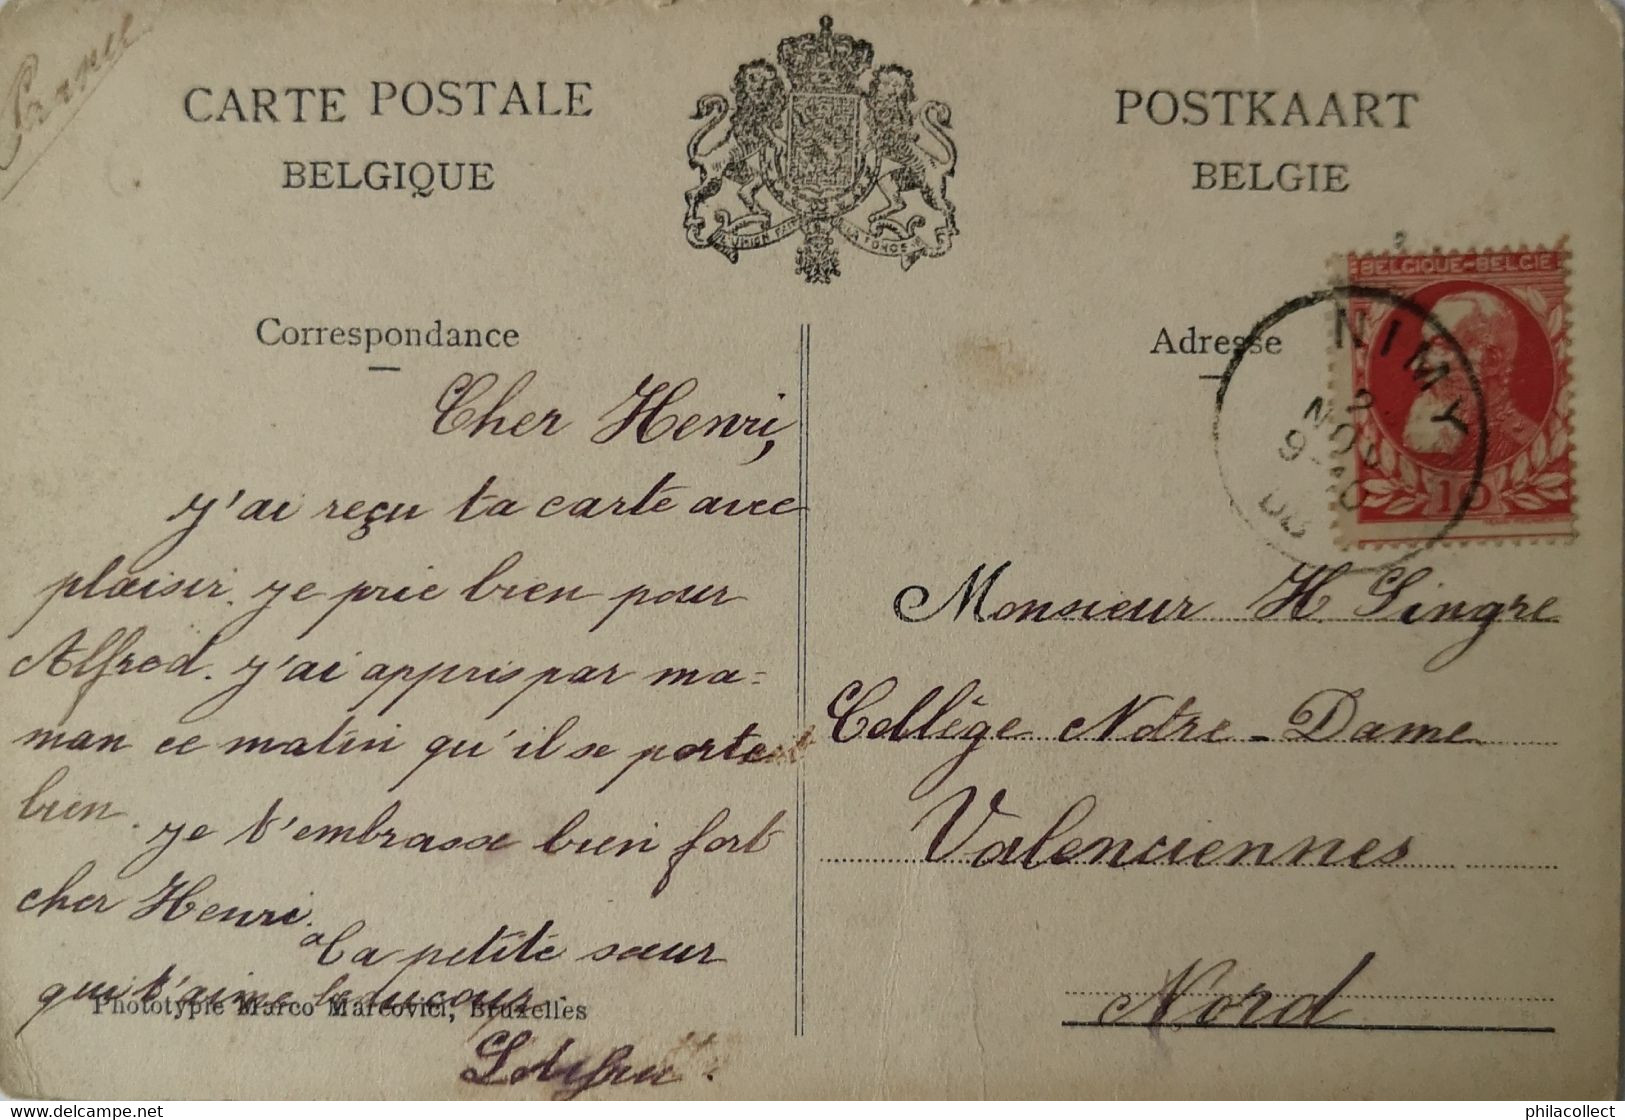 CARTE POSTALE
BELGIQUE
POSTKAART
BELGIE
L'UNION FAIT LA FORCE
BELGIQUE-BELGIE
10
NIMY
2
NOV
9
Correspondance
Adresse
Cher Henri,
j'ai reçu ta carte avec
plaisir. je prie bien pour
Alfred. j'ai appris par ma=
man ce matin qu'il se porte
bien. je t'embrasse bien fort
cher Henri.
Ta petite sœur
qui t'aime beaucoup.
Phototypie Marco Marcovici, Bruxelles
Monsieur H. Singre
Collège Notre-Dame
Valenciennes
Nord
philacollect